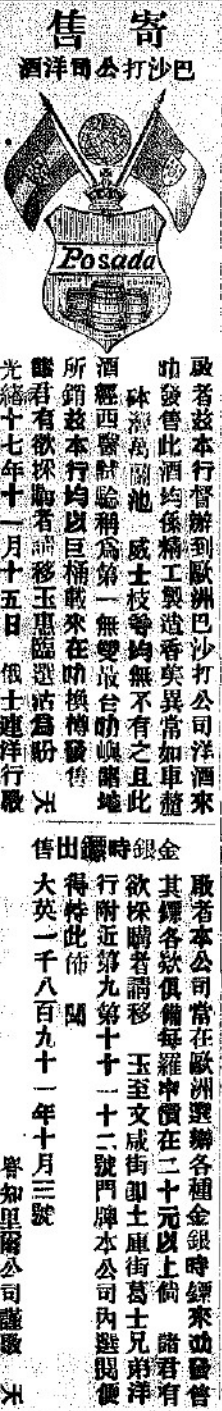 寄售
巴沙打公司洋酒
Posada
啟者茲本行督辦到歐洲巴沙打公司洋酒來
叻發售此酒均係精工製造香美異常如車厘
砵 萬蘭池 威士枝等均無不有之且此
酒經西醫試驗稱為第一無雙最合叻嶼諸埠
所銷茲本行均以巨桶載來在叻換樽發售
諸君有欲採購者請移玉惠臨選沽為盼 天
光緒十七年十一月十五日 俄士連洋行啟
金銀時鏢出售
啟者本公司常在歐洲選辦各種金銀時鏢來叻發售
其鏢各欵俱備每羅申價在二十元以上倘 諸君有
欲採購者請移 玉至文咸街即土庫街葛士兄弟洋
行附近第九第十十一十二號門牌本公司內選閱便
得特此佈 聞
大英一千八百九十一年十月三號
知里爾公司謹啟 天